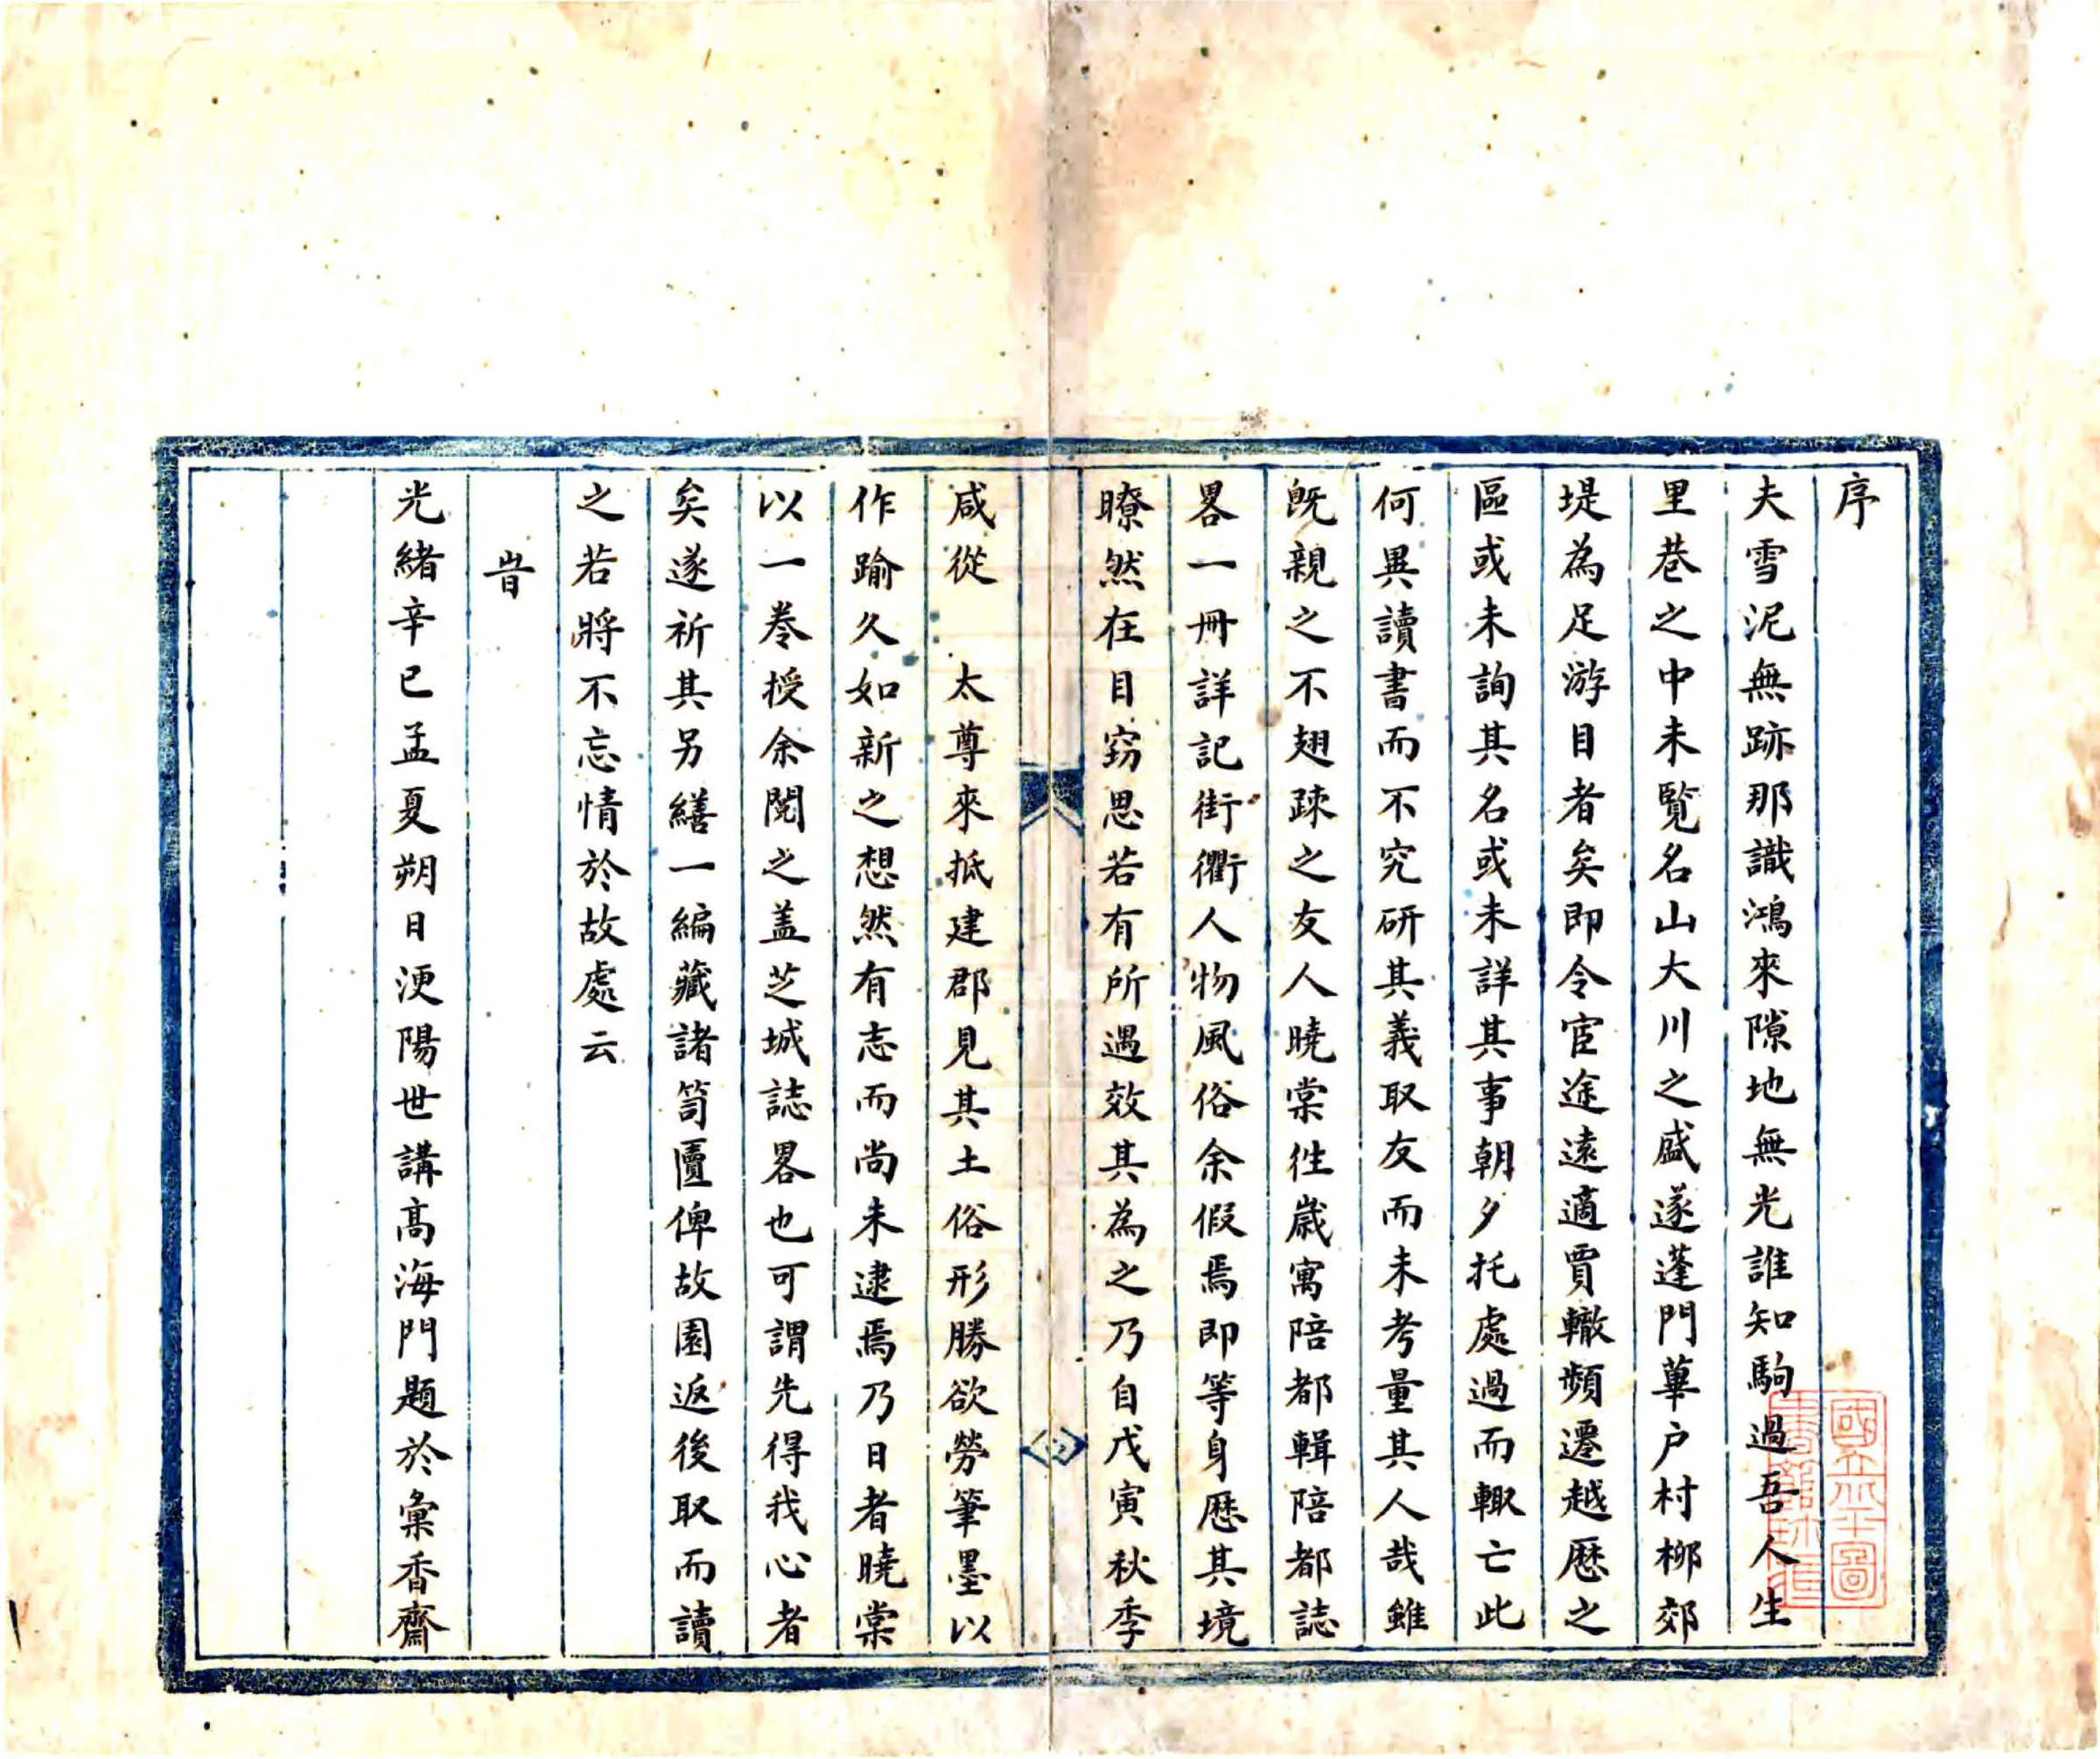 序
夫雪泥無跡那識鴻來隙地無光誰知駒過吾人生
里巷之中未覧名山大川之盛遂蓬門蓽户村柳郊
堤為足游目者矣即令宦途遠適賈轍頻遷越歷之
區或未詢其名或未詳其事朝夕托處過而輙亡此
何異讀書而不究研其義取友而未考量其人哉雖
既親之不翅踈之友人曉棠徃嵗寓陪都輯陪都誌
畧一冊詳記街衢人物風俗余假焉即等身歷其境
瞭然在目窃思若有所遇效其為之乃自戊寅秋季
咸從　太尊來抵建郡見其土俗形勝欲勞筆墨以
作踰久如新之想然有志而尚未逮焉乃日者曉棠
以一卷授余閱之盖芝城誌畧也可謂先得我心者
矣遂祈其另繕一編藏諸笥匱俾故園返後取而讀
之若將不忘情於故處云
旹
光緒辛巳孟夏朔日浭陽世講高海門題於彙香齋
國立北平圖
書館珍藏